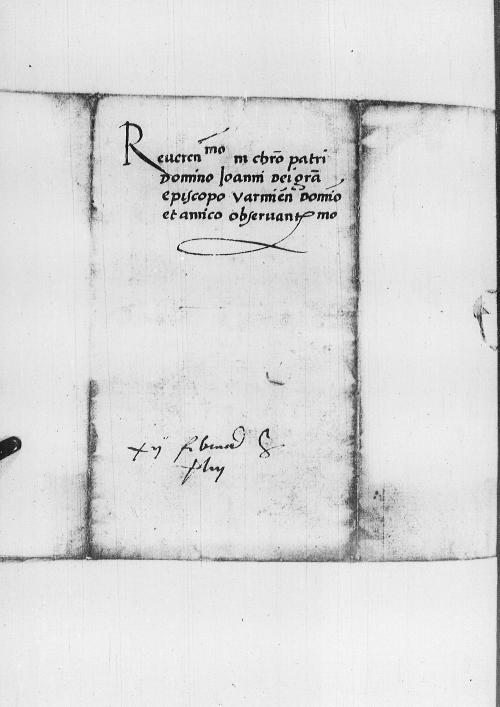 Reveren^mo in chr̄o patri
Domino Joanni Dei gr̄a
Episcopo Varmień Domīo
et amico observant^mo
xij februarȷ